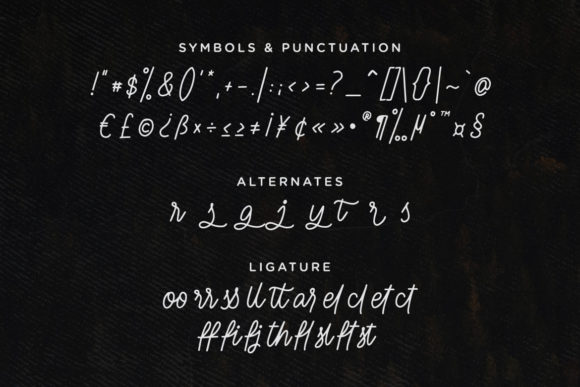 SYMBOLS & PUNCTUATION
!"#$%&()'*,+-./:;<>=?_^[]\{}|~`@
€£©¿ß×÷≤≥≠¡¥¢«»•®¶‰µ°™¤§
ALTERNATES
r s g j y t r s
LIGATURE
oo rr ss ll tt ar el cl et ct
ff fi fj th fl sl ft st